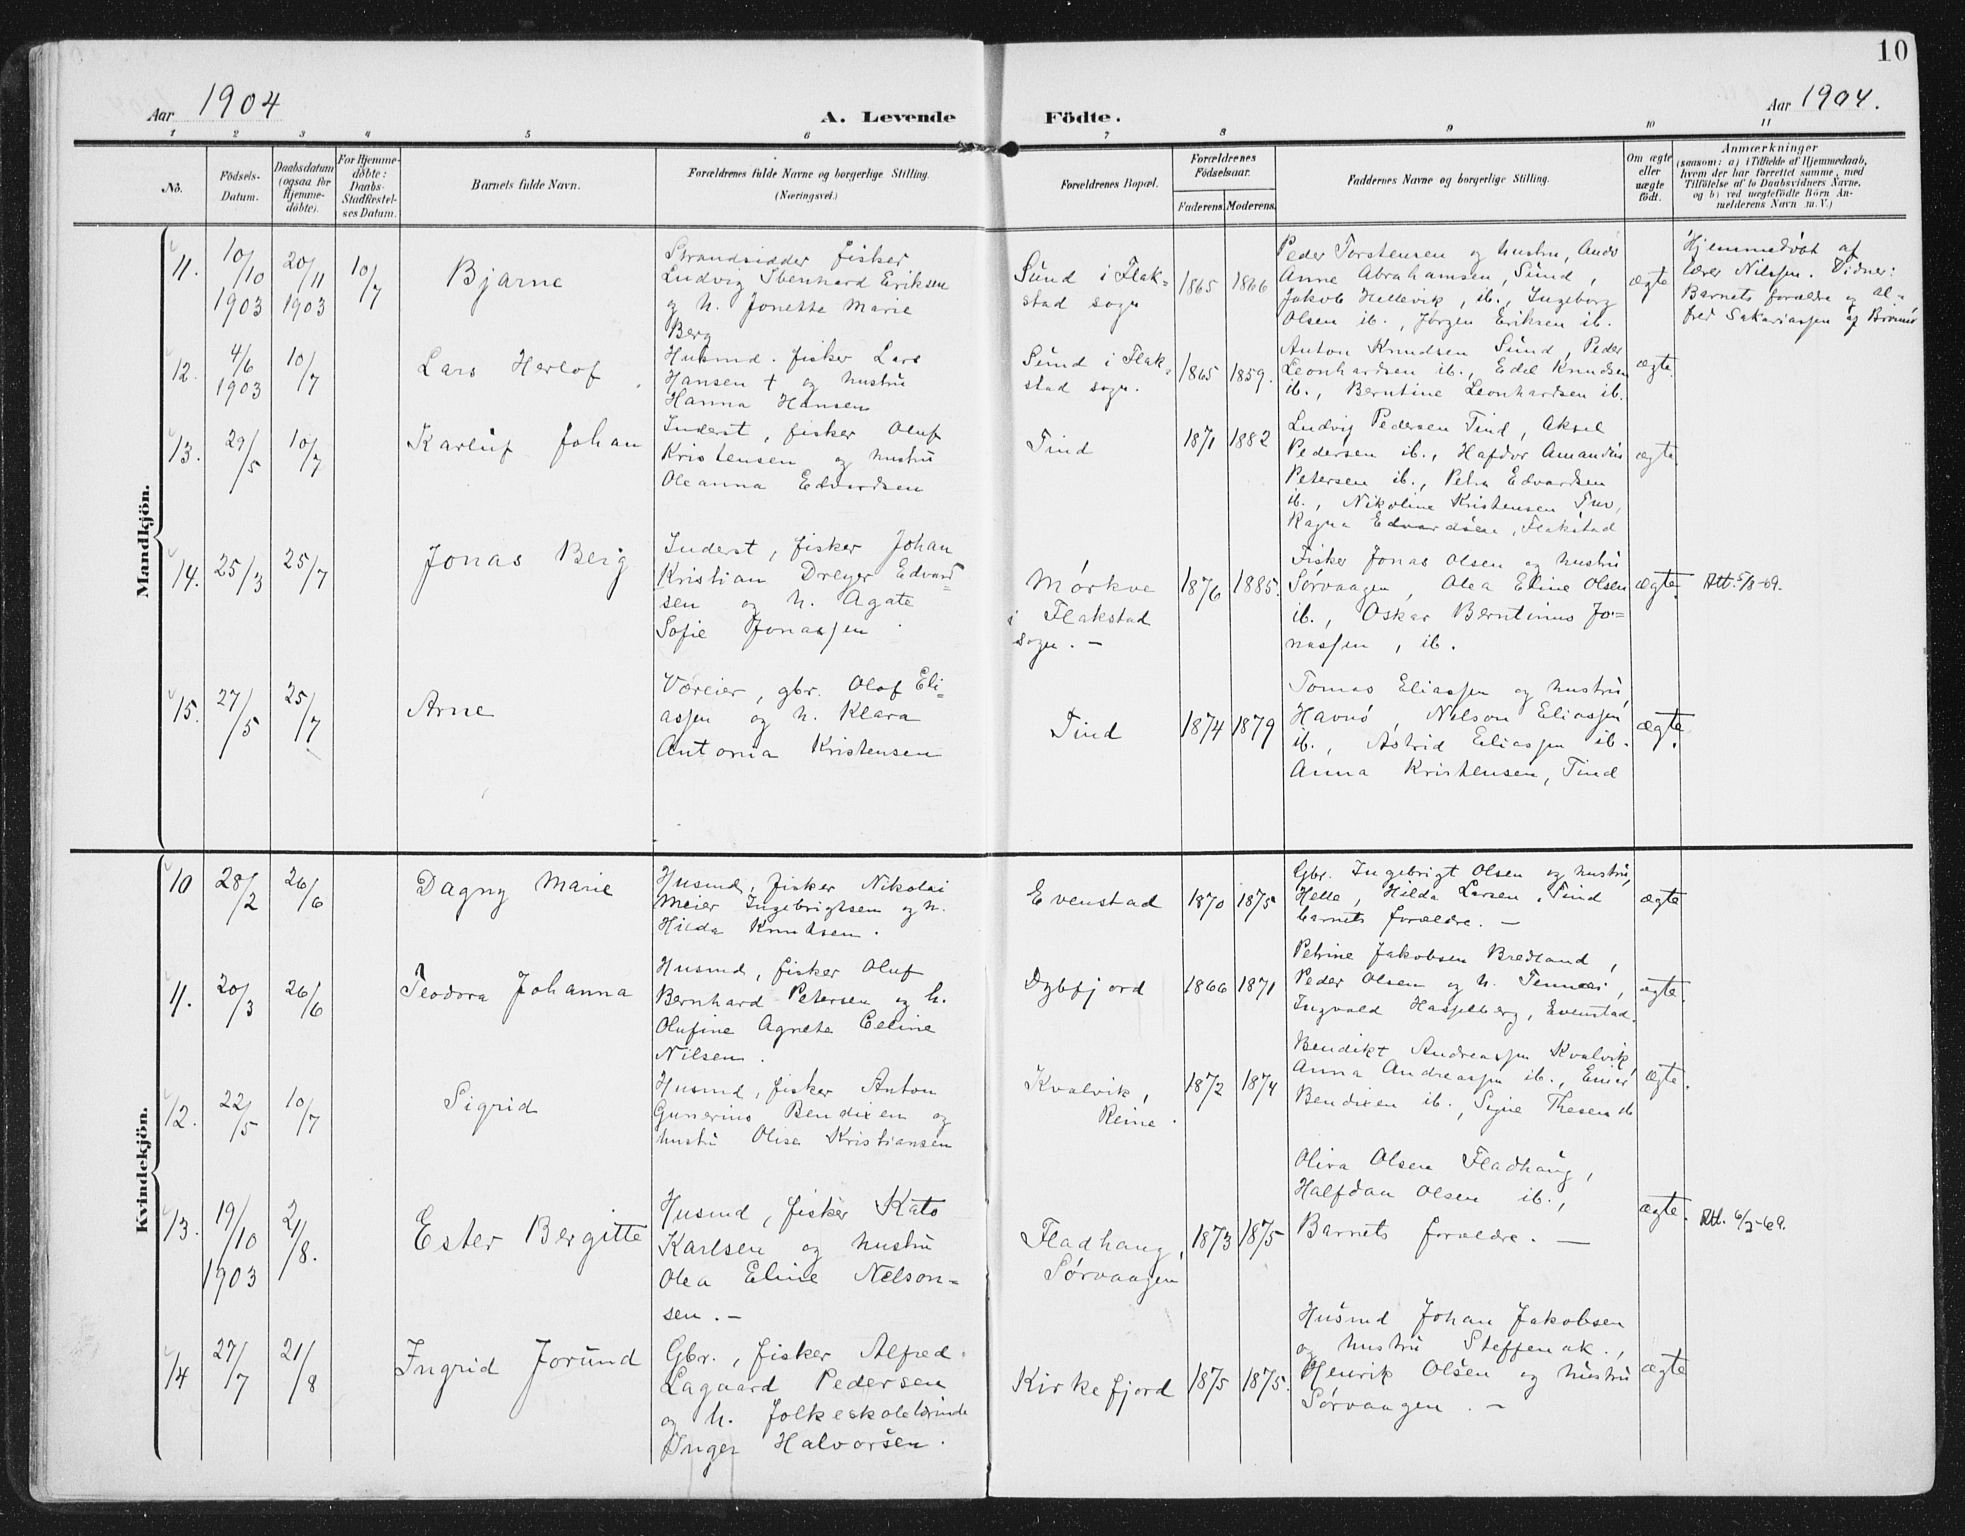 10
Aar 1904
A. Levende
Födte.
Aar 1904.
1 2 3 4 5 6 7 8 9 10 11
No.
Födsels-
Datum.
Daabsdatum
(ogsaa for
Hjemme-
döbte).
For Hjemme-
döbte:
Daabs-
Stadfestel-
ses Datum.
Barnets fulde Navn.
Forældrenes fulde Navne og borgerlige Stilling.
(Næringsvei.)
Forældrenes Bopæl.
Forældrenes
Födselsaar.
Faderens. Moderens.
Faddernes Navne og borgerlige Stilling.
Om ægte
eller
uægte
födt.
Anmærkninger
(saasom: a) i Tilfælde af Hjemmedaab,
hvem der har forrettet samme, med
Tilföielse af to Daabsvidners Navne,
og b) ved uægtefödte Börn An-
melderens Navn m. V.)
Mandkjön.
11.
10/10
1903
20/11
1903
10/7
Bjarne
Strandsidder fisker
Ludvig Ebenhard Eriksen
og h. Jonette Marie
Berg
Sund i Flak-
stad sogn
1865 1866
Peder Torstensen og hustru,
Anne Abrahamsen, Sund,
Jakob Hellevik, ib., Ingeborg
Olsen ib., Jørgen Eriksen ib.
ægte
Hjemmedøbt af
lærer Nilssen. Vidner:
Barnets forældre og al-
fred Sakariassen af
12.
4/6
1903
10/7
Lars Herlof
Husmd. fisker Lars
Hansen + og hustru
Hanna Hansen
Sund i Flak-
stad sogn.
1865 1859.
Anton Knudsen Sund, Peder
Leonhardsen ib., Edel Knudsen
ib., Berntine Leonhardsen ib.
ægte.
13.
29/5
10/7
Karluf Johan
Inderst, fisker Oluf
Kristensen og hustru
Oleanna Edvardsen
Tind
1871 1882
Ludvig Pedersen Tind, Aksel
Pedersen ib., Hafdor Amandus
Petersen ib., Petra Edvardsen
ib., Nikoline Kristensen
Ragna Edvardsen, Flakstad
ægte.
14.
25/3
25/7
Jonas Berg
Inderst, fisker Johan
Kristian Dreyer Edvard-
sen og h. Agate
Sofie Jonassen.
Mørkve
i Flakstad
sogn. -
1876 1885.
Fisker Jonas Olsen og hustru
Sørvaagen, Olea Eline Olsen
ib., Oskar Berntinus Jo-
nassen, ib.
ægte.
Att. 5/8-69.
15.
27/5
25/7
Arne
Vøreier, gbr. Olaf Eli-
assen og h. Klara
Antonia Kristensen
Tind
1874 1879
Tomas Eliassen og hustru,
Havnø, Nelson Eliassen
ib., Astrid Eliassen ib.
Anna Kristensen, Tind
ægte.
Kvindekjön.
10
28/2
26/6
Dagny Marie
Husmd, fisker Nikolai
Meier Ingebrigtsen og h.
Hilda Knudsen.
Evenstad
1870 1875
Gbr. Ingebrigt Olsen og hustru,
Helle, Hilda Larsen, Tind
barnets forældre. -
ægte
11.
20/3
26/6
Teodora Johanna
Husmd, fisker Oluf
Bernhard Petersen og h.
Olufine Agnete Celine
Nilsen.
Dybfjord
1866 1871
Petrine Jakobsen Bredland,
Peder Olsen og h. Tennes,
Ingvald Hasselberg, Evenstad.
ægte.
12.
22/5
10/7
Sigrid
Husmd, fisker Anton
Gunerius Bendixen og
hustru Olise Kristiansen
Kvalvik,
Reine.
1872 1874
Bendikt Andreassen Kvalvik,
Anna Andreassen ib., Einar
Bendixen ib., Signe Thesen ib
ægte.
13.
19/10
1903
21/8.
Ester Bergitte
Husmd, fisker Kato
Karlsen og hustru
Olea Eline Nelson-
sen. -
Fladhaug,
Sørvaagen
1873 1875
Oliva Olsen Fladhaug,
Halfdan Olsen ib.,
Barnets forældre. -
ægte.
Att. 6/3-69.
14
27/7
21/8
Ingrid Jorund
Gbr., fisker Alfred
Lagaard Pedersen
og h. folkeskolelærinde
Inger Halvorsen.
Kirkefjord
1875 1875.
Husmd Johan Jakobsen
og hustru Steffenak.,
Henrik Olsen og hustru
Sørvaagen. -
ægte